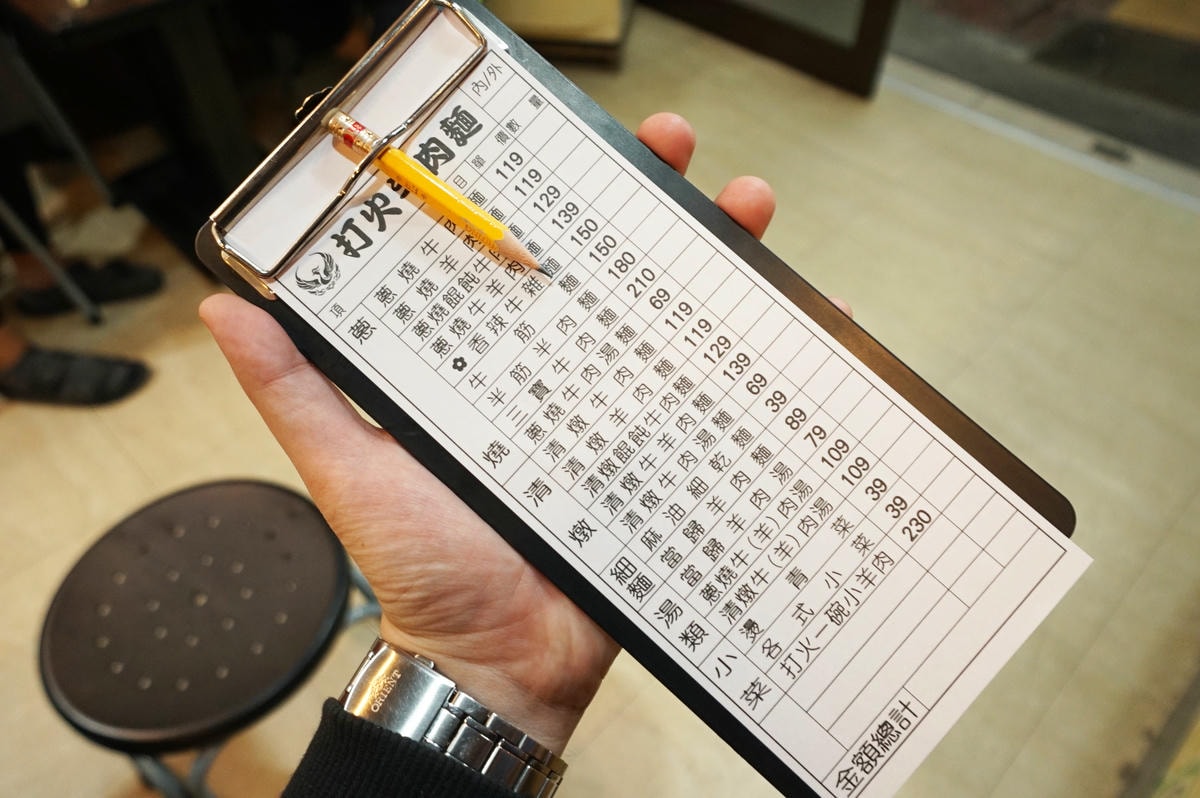 內/外
打火 肉麵
項目 單價 數量
蔥燒
蔥燒牛肉麵 119
蔥燒羊肉麵 119
蔥燒餛飩牛肉麵 129
蔥燒牛羊肉麵 139
✿香辣牛雜麵 150
牛筋麵 150
半筋半肉麵 180
三寶牛肉麵 210
蔥燒牛肉湯麵 69
清燉
清燉牛肉麵 119
清燉羊肉麵 119
清燉餛飩牛肉麵 129
清燉牛羊肉麵 139
清燉牛肉湯麵 69
細麵
麻油細乾麵 39
當歸羊肉麵 89
湯類
當歸羊肉湯 79
蔥燒牛(羊)肉湯 109
清燉牛(羊)肉湯 109
小菜
燙青菜 39
各式小菜 39
打火一碗小羊肉 230
金額總計
ORIENT